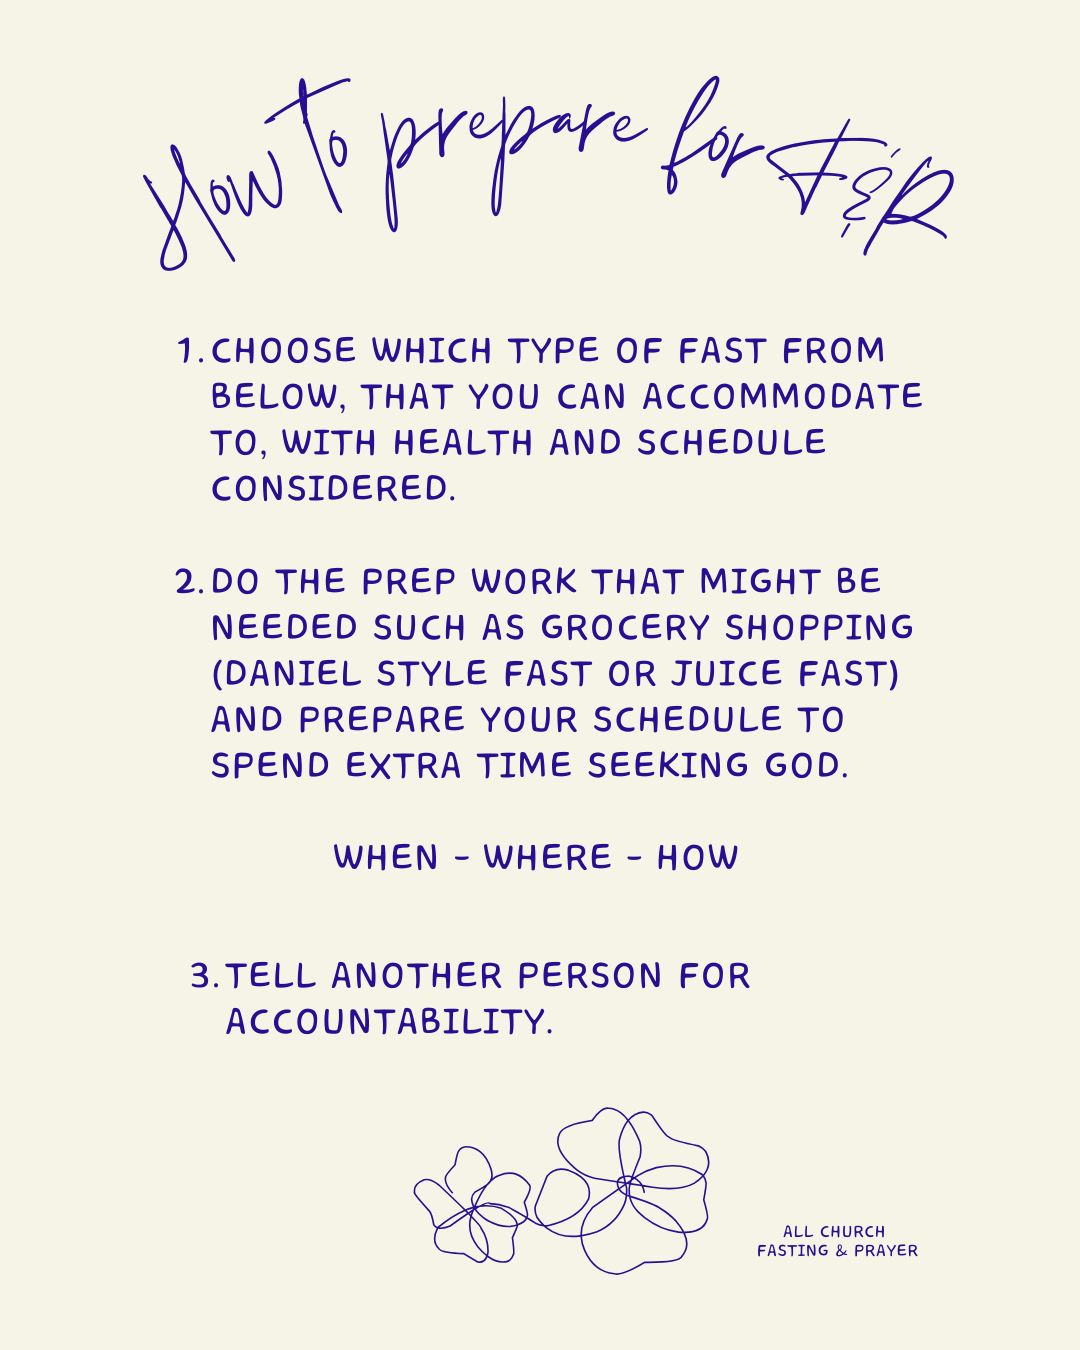 How to prepare for F & P
1. CHOOSE WHICH TYPE OF FAST FROM
BELOW, THAT YOU CAN ACCOMMODATE
TO, WITH HEALTH AND SCHEDULE
CONSIDERED.
2. DO THE PREP WORK THAT MIGHT BE
NEEDED SUCH AS GROCERY SHOPPING
(DANIEL STYLE FAST OR JUICE FAST)
AND PREPARE YOUR SCHEDULE TO
SPEND EXTRA TIME SEEKING GOD.
WHEN - WHERE - HOW
3. TELL ANOTHER PERSON FOR
ACCOUNTABILITY.
ALL CHURCH
FASTING & PRAYER